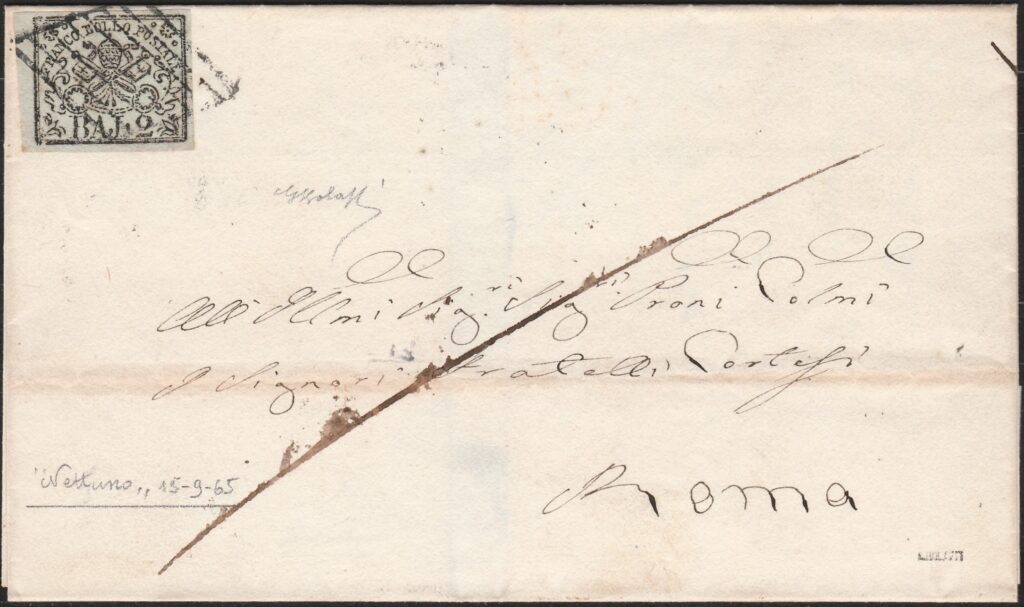 FRANCO BOLLO POSTALE
BAJ. 2
Alli Illmi Sig.ri Sig.ri Proni Colmi
I Signori Fratelli Cortesi
Roma
"Nettuno,, 15-9-65